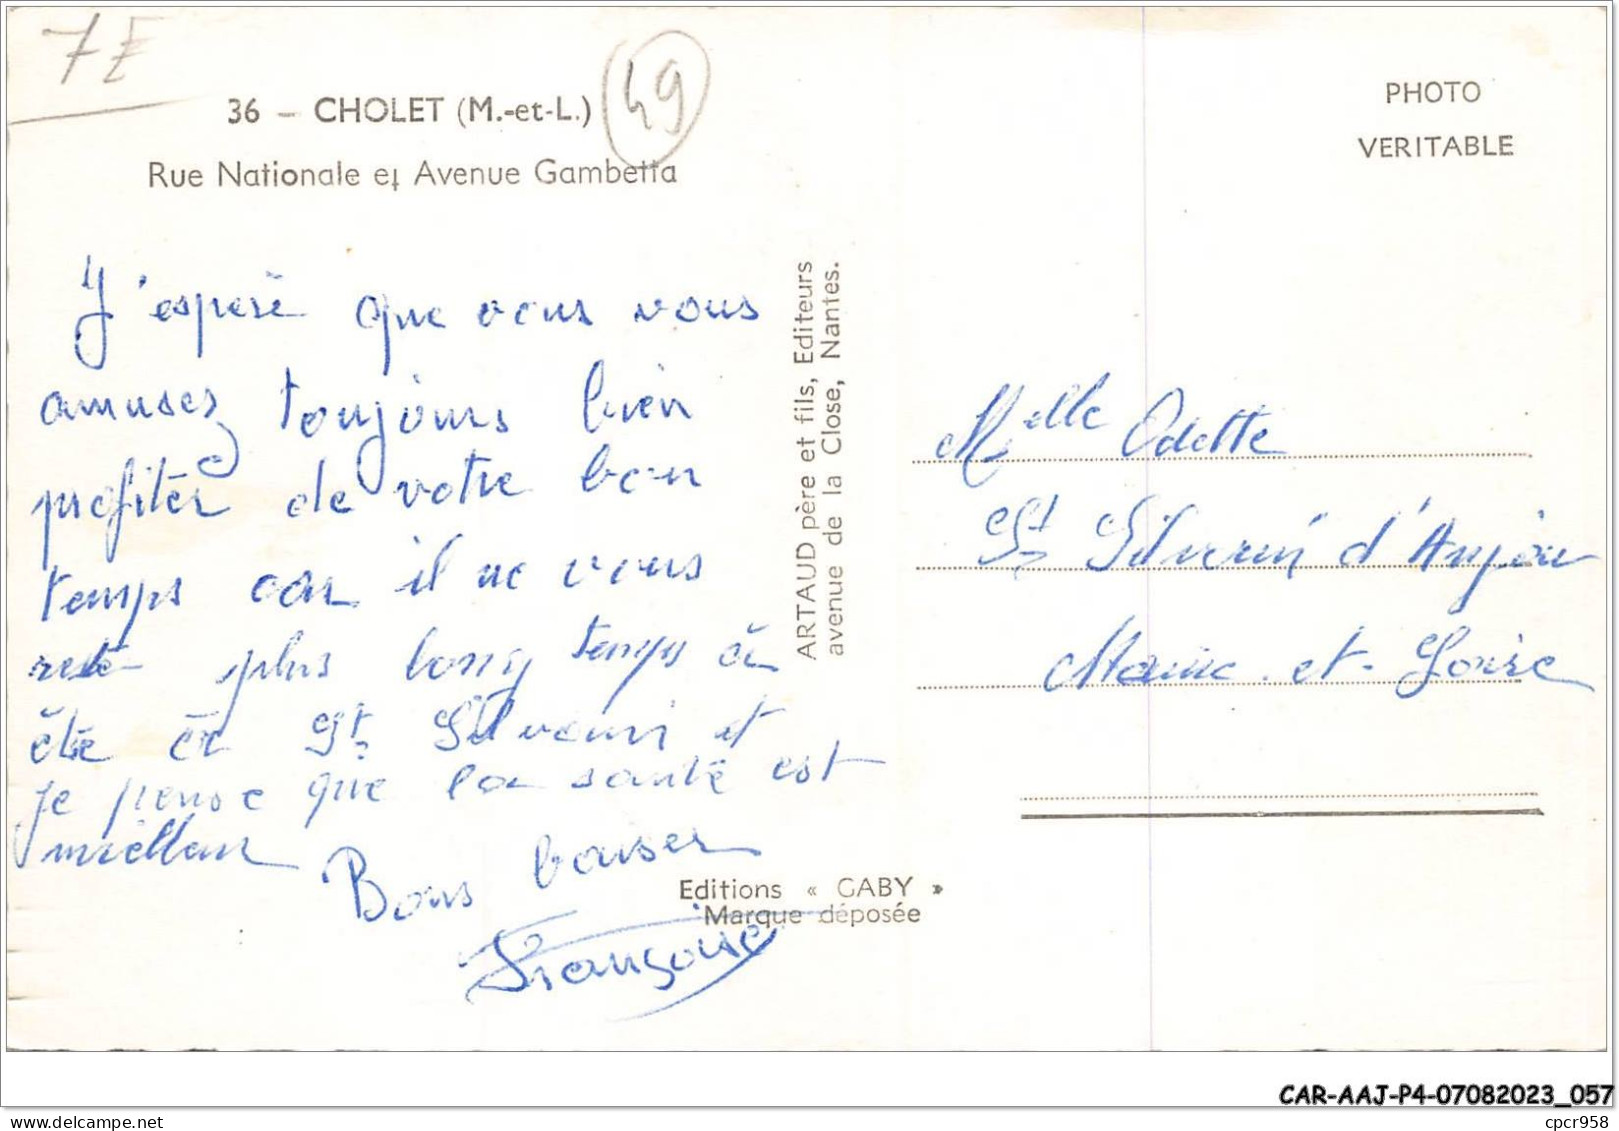 7 E
36 - CHOLET (M.-et-L.)
49
Rue Nationale et Avenue Gambetta
PHOTO
VERITABLE
J'esperè que vous vous
amusez toujours bien
profiter de votre bon
temps car il ne vous
reste plus long temps à
être à St Silvouin et
je pense que la santé est
meilleur
Bons baiser
Françoise
ARTAUD père et fils, Editeurs
avenue de la Close, Nantes.
Editions « GABY »
Marque déposée
Melle Odette
St d'Anjou
Maine-et-Loire
CAR-AAJ-P4-07082023_057
cpcr958